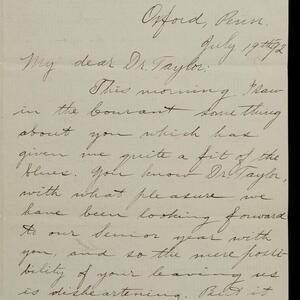 Oxford, Penn.
July 19th 92
My dear Dr. Taylor:
This morning I saw
in the Courant something
about you which has
given me quite a fit of the
blues. You know Dr. Taylor,
with what pleasure we
have been looking forward
to our Senior year with
you, and so the mere possi-
bility of your leaving us
is disheartening. But it